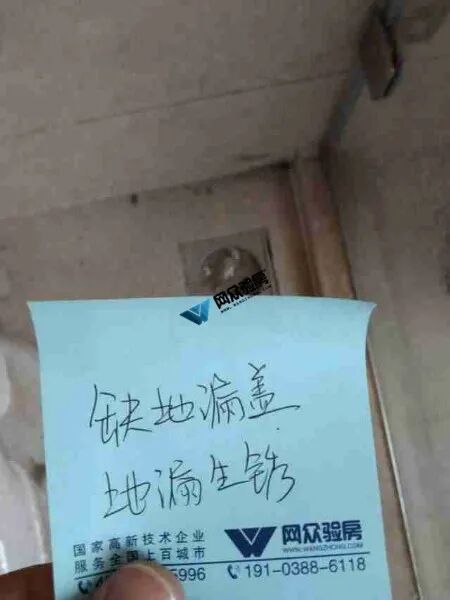 网众验房
网众验房
缺地漏盖
地漏生锈
国家高新技术企业
服务全国上百城市
5996
网众验房
WWW.WANGZHONG.COM
191-0388-6118